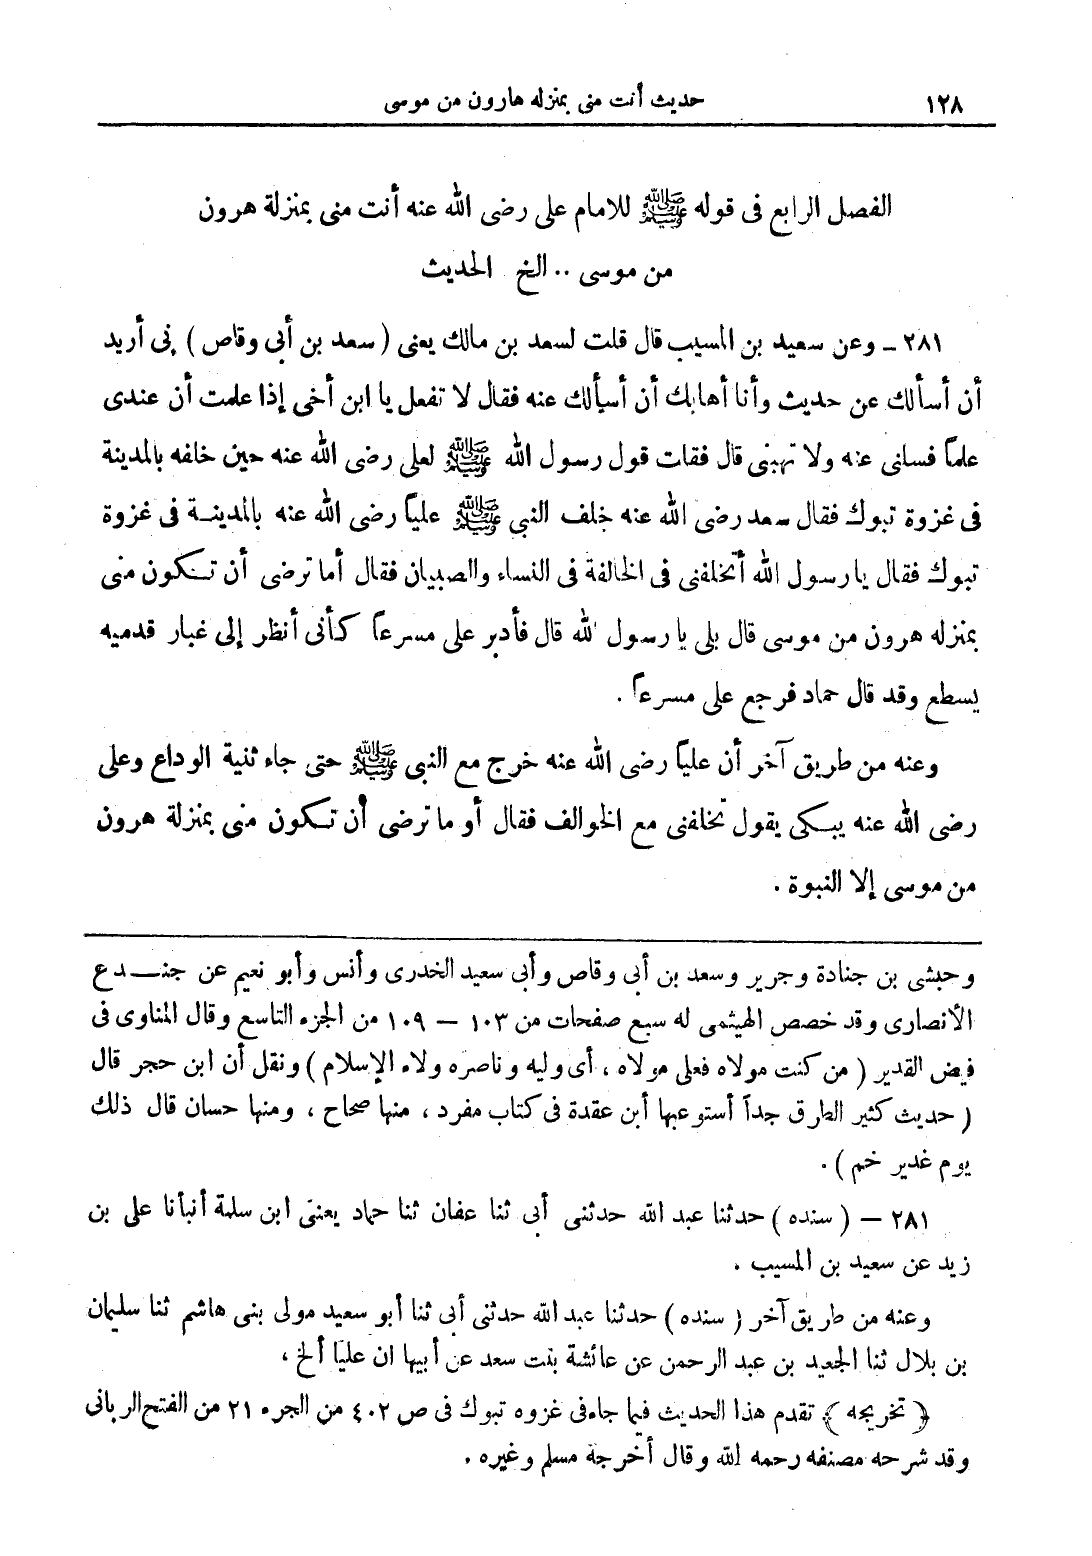 ١٢٨ حديث أنت منى بمنزله هارون من موسى
الفصل الرابع فى قوله ﷺ للامام على رضى الله عنه أنت منى بمنزلة هرون
من موسى .. الخ الحديث
٢٨١ ــ وعن سعيد بن المسيب قال قلت لسعد بن مالك يعنى ( سعد بن أبى وقاص ) إنى أريد
أن أسألك عن حديث وأنا أهابك أن أسألك عنه فقال لا تفعل يا ابن أخى إذا علمت أن عندى
علماً فسلنى عنه ولا تهبنى قال فقلت قول رسول الله ﷺ لعلى رضى الله عنه حين خلفه بالمدينة
فى غزوة تبوك فقال سعد رضى الله عنه خلف النبى ﷺ علياً رضى الله عنه بالمدينة فى غزوة
تبوك فقال يا رسول الله أتخلفنى فى الخالفة فى النساء والصبيان فقال أما ترضى أن تكون منى
بمنزله هرون من موسى قال بلى يا رسول الله قال فأدبر على مسرعاً كأنى أنظر إلى غبار قدميه
يسطع وقد قال حماد فرجع على مسرعاً .
وعنه من طريق آخر أن علياً رضى الله عنه خرج مع النبى ﷺ حتى جاء ثنية الوداع وعلى
رضى الله عنه يبكى يقول تخلفنى مع الخوالف فقال أو ما ترضى أن تكون منى بمنزلة هرون
من موسى إلا النبوة .
وحبشى بن جنادة وجرير وسعد بن أبى وقاص وأبى سعيد الخدرى وأنس وأبو نعيم عن جنـدع
الأنصارى وقد خصص الهيثمى له سبع صفحات من ١٠٣ – ١٠٩ من الجزء التاسع وقال المناوى فى
فيض القدير ( من كنت مولاه فعلى مولاه ، أى وليه وناصره ولاء الإسلام ) ونقل أن ابن حجر قال
( حديث كثير الطرق جداً أستوعبها أبن عقدة فى كتاب مفرد ، منها صحاح ، ومنها حسان قال ذلك
يوم غدير خم ) .
٢٨١ – ( سنده ) حدثنا عبد الله حدثنى أبى ثنا عفان ثنا حماد يعنى ابن سلمة أنبأنا على بن
زيد عن سعيد بن المسيب .
وعنه من طريق آخر ( سنده ) حدثنا عبد الله حدثنى أبى ثنا أبو سعيد مولى بنى هاشم ثنا سليمان
بن بلال ثنا الجعيد بن عبد الرحمن عن عائشة بنت سعد عن أبيها ان علياً ألخ ،
﴿ تخريجه ﴾ تقدم هذا الحديث فيما جاء فى غزوه تبوك فى ص ٤٠٢ من الجزء ٢١ من الفتح الربانى
وقد شرحه مصنفه رحمه الله وقال أخرجة مسلم وغيره .